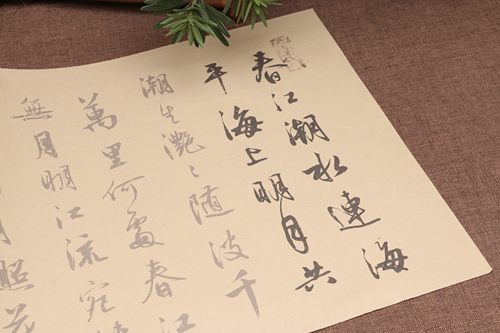 春江潮水連海
平海上明月共
潮生灧〻随波千
萬里何處春江
無月明江流宛
月照花